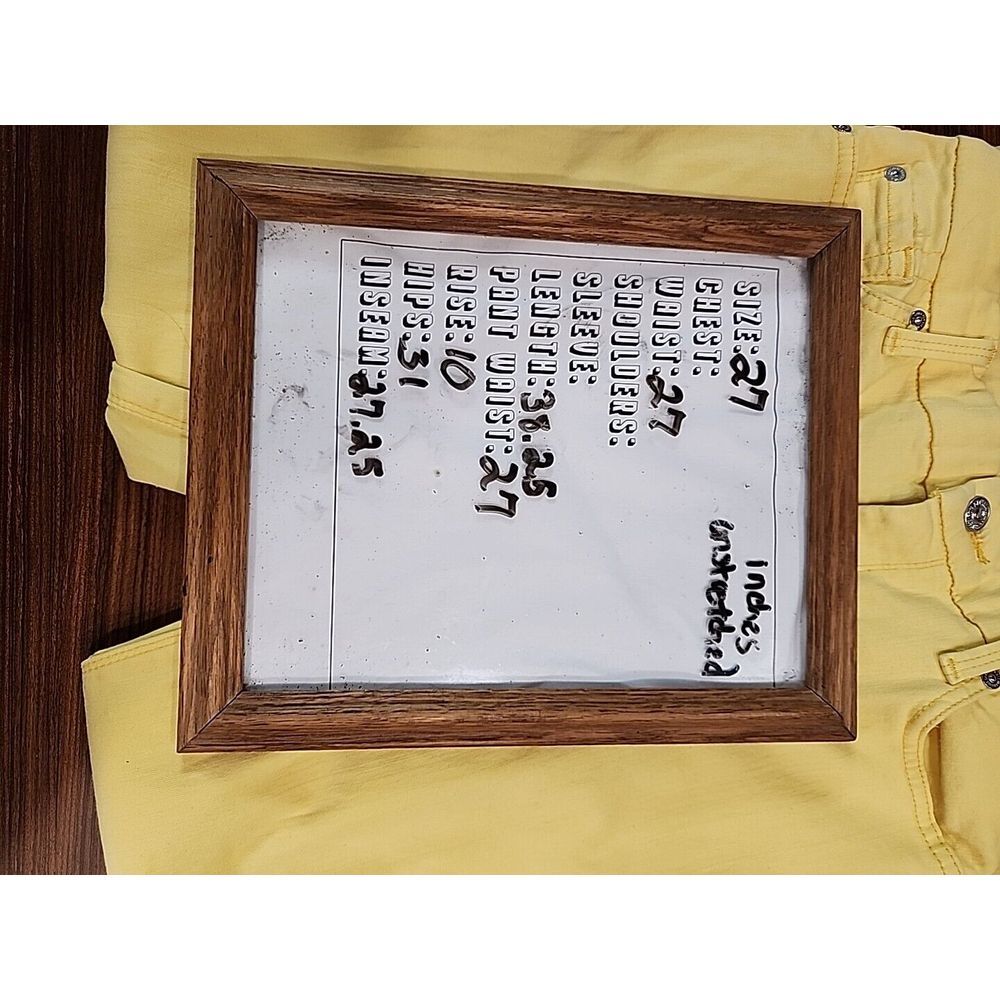 inches
unstretched
SIZE: 27
CHEST:
WAIST: 27
SHOULDERS:
SLEEVE:
LENGTH: 38.25
PANT WAIST: 27
RISE: 10
HIPS: 31
INSEAM: 27.25